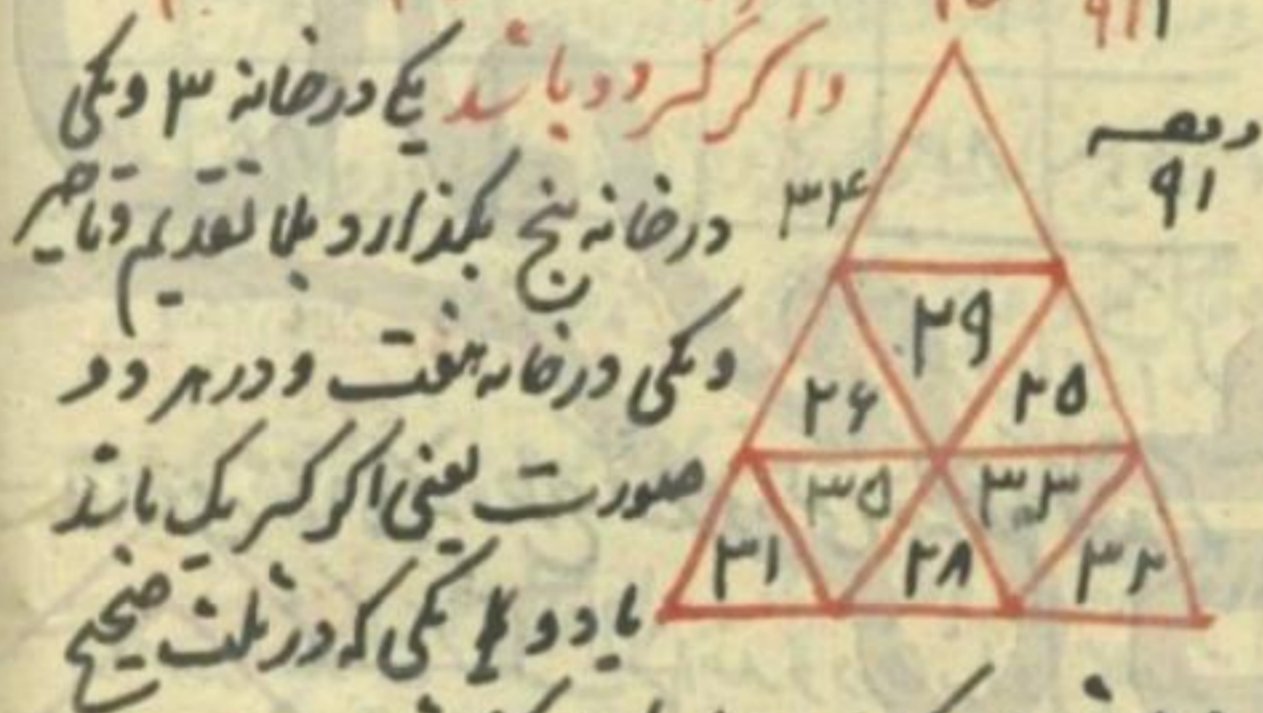 ۹۱۱
واگر کسر دو باشد یکی در خانه ۳ و یکی
در خانه پنج بگذارد بلا تقدیم و تاخیر
و یکی در خانه هفت و در هر دو
صورت یعنی اگر کسر یک باشد
یا دو یکی که در ثلث صحیح
۹۱
۳۴
۲۹
۲۶
۲۵
۳۵
۳۳
۳۱
۲۸
۳۲